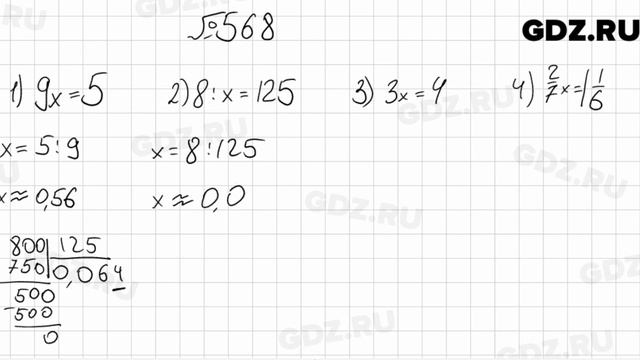 №568
GDZ.RU
1) 9x=5
x=5:9
x≈0,56
2) 8:x=125
x=8:125
x≈0,0
3) 3x=4
4) 2/7 x=1 1/6
800 | 125
750 | 0,064
500
-500
0
GDZ.RU
GDZ.RU
GDZ.RU
GDZ.RU
GDZ.RU
GDZ.RU